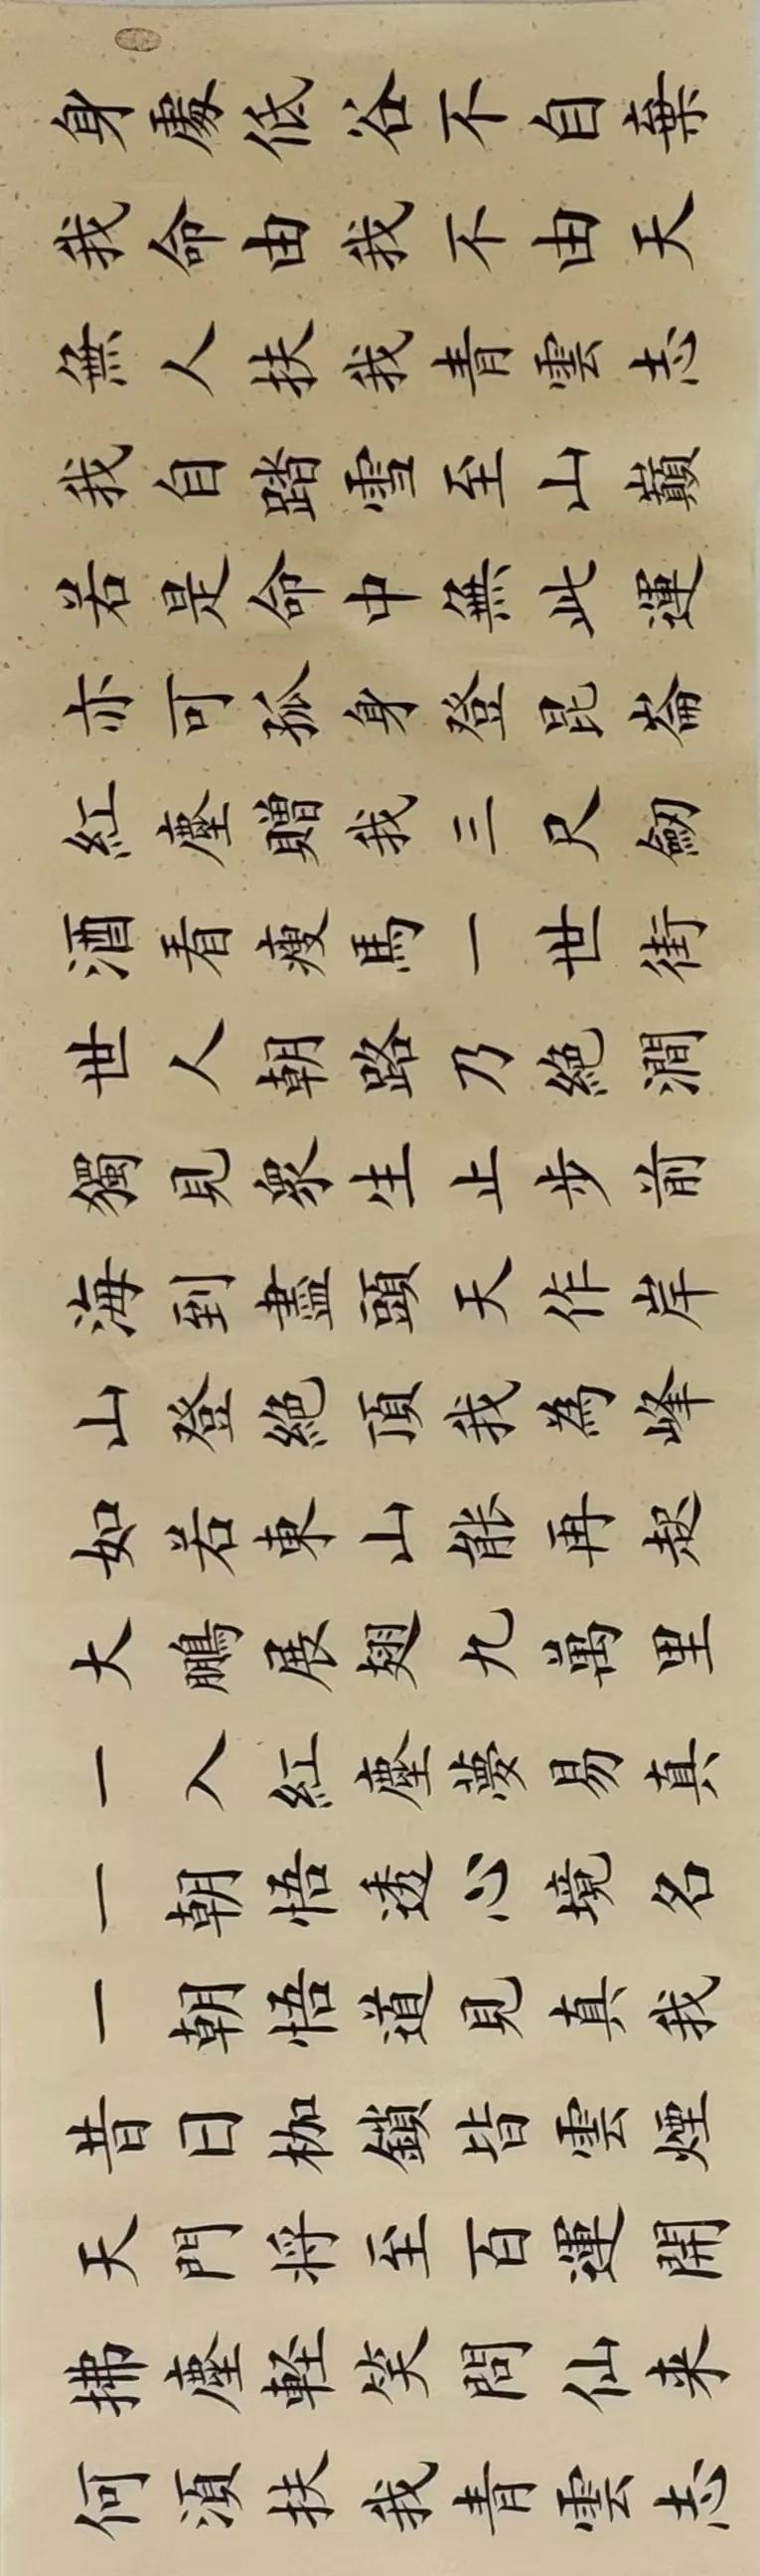 身處低谷不自棄
我命由我不由天
無人扶我青雲志
我自踏雪至山巔
若是命中無此運
亦可孤身登昆崙
紅塵贈我三尺劒
酒看瘦馬一世街
世人朝路乃絕澗
獨見衆生止步前
海到盡頭天作岸
山登絕頂我為峰
如若東山能再起
大鵬展翅九萬里
一入紅塵夢易真
一朝悟透心境名
一朝悟道見真我
昔日枷鎖皆雲煙
天門将至百運開
拂塵軽笑問仙来
何須扶我青雲志